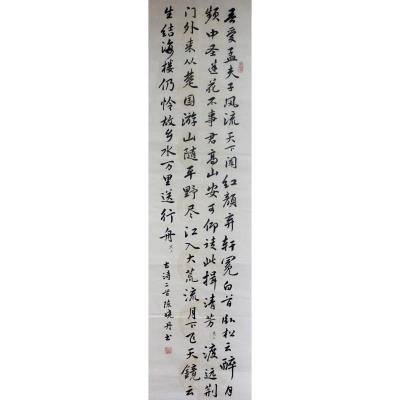 吾爱孟夫子风流天下闻红颜弃轩冕白首卧松云醉月
频中圣迷花不事君高山安可仰徒此揖清芬 渡远荆
门外来从楚国游山随平野尽江入大荒流月下飞天镜云
生结海楼仍怜故乡水万里送行舟 古诗二首陈晓丹书